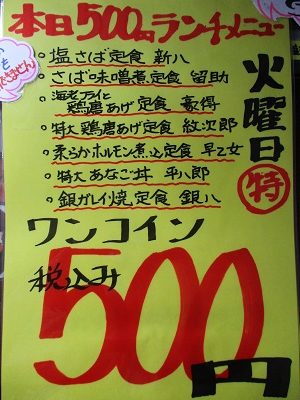 本日500円ランチメニュー
火曜日㊕
◦塩さば定食 新八
◦さば味噌煮定食 留助
◦海老フライと鶏唐あげ定食 豪得
◦特大鶏唐あげ定食 紋次郎
◦柔らかホルモン煮込定食 早乙女
◦特大あなご丼 平八郎
◦銀ガレイ焼定食 銀八
ワンコイン
税込み
500円